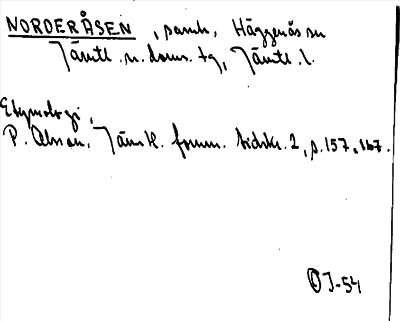 NORDERÅSEN, samh, Häggenås sn
Jämtl. n. doms. tg, Jämtl. l.
Etymologi,
P. Olsson, Jämtl. fornm. tidskr. 2, s. 157, 167.
OJ-54